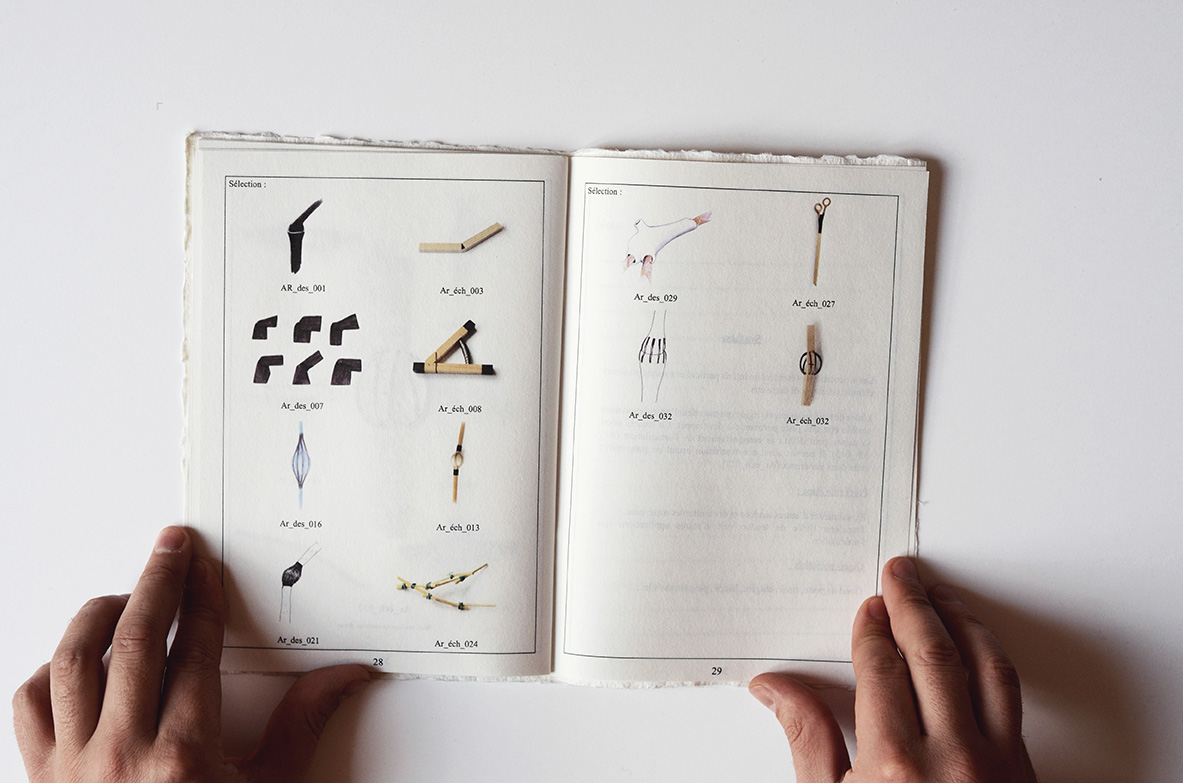 Sélection :
AR_des_001
Ar_éch_003
Ar_des_007
Ar_éch_008
Ar_des_016
Ar_éch_013
Ar_des_021
Ar_éch_024
28
Sélection :
Ar_des_029
Ar_éch_027
Ar_des_032
Ar_éch_032
29